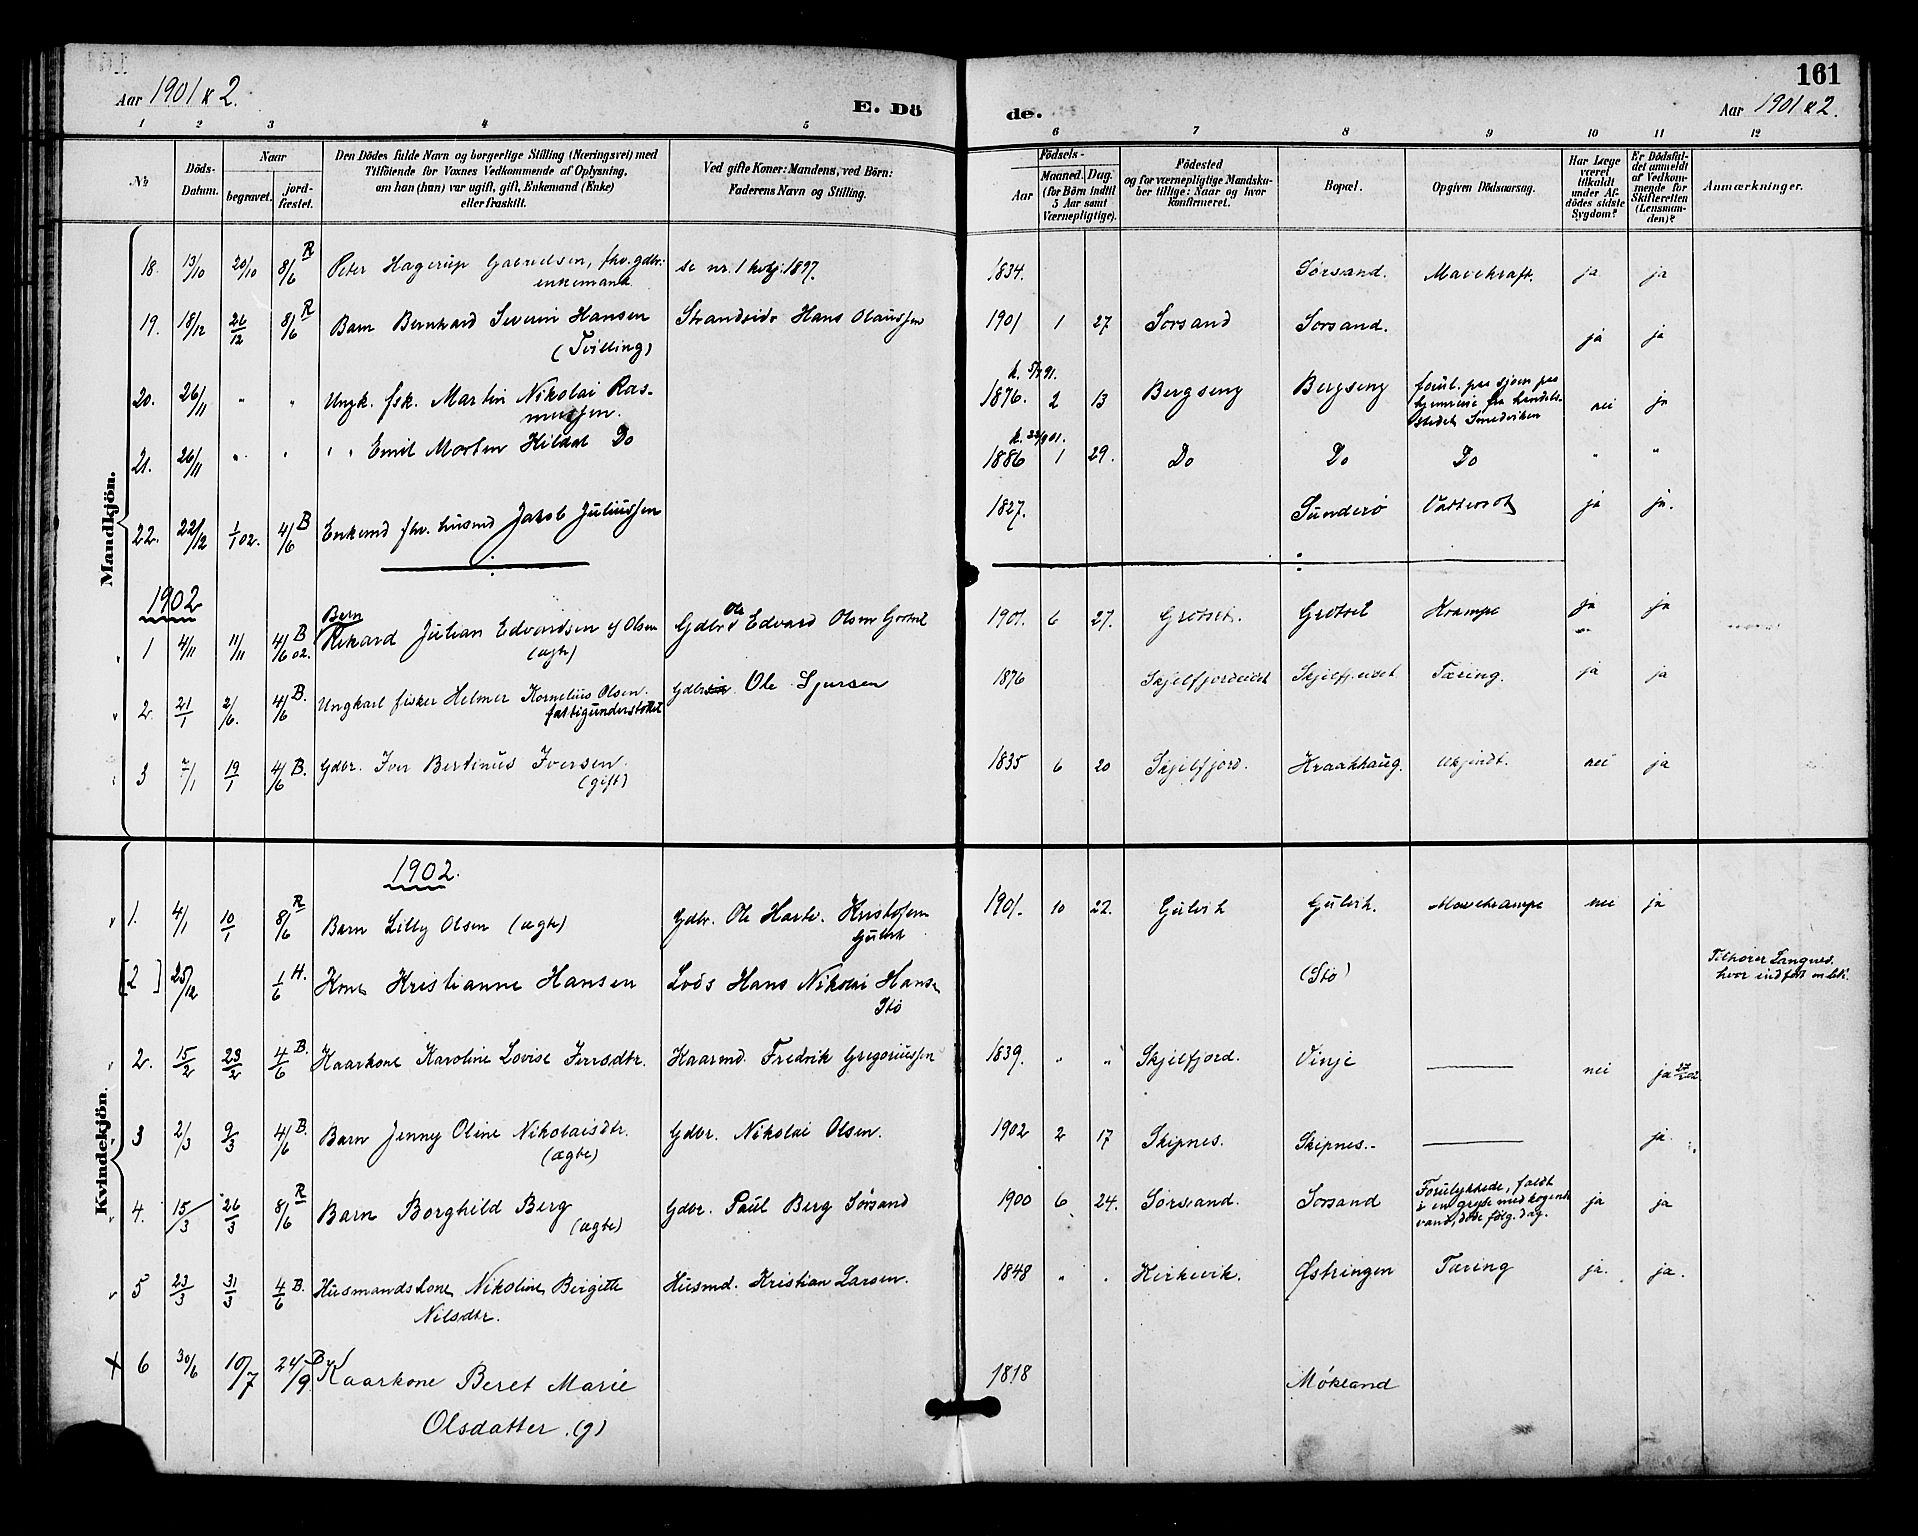 161
Aar 1901 & 2.
E. Dö
de.
Aar 1901 & 2.
1 2 3 4 5 6 7 8 9 10 11 12
No.
Döds-
Datum.
Naar
begravet.
jord-
fæstet.
Den Dödes fulde Navn og borgerlige Stilling (Næringsvei) med
Tilföiende for Voxnes Vedkommende af Oplysning,
om han (hun) var ugift, gift, Enkemand (Enke)
eller fraskilt.
Ved gifte Koner: Mandens, ved Börn:
Faderens Navn og Stilling.
Födsels-
Aar
Maaned. Dag.
(for Börn indtil
5 Aar samt
Værnepligtige).
Födested
og for værnepligtige Mandska-
ber tillige: Naar og hvor
konfirmeret.
Bopæl.
Opgiven Dödsaarsag.
Har Læge
været
tilkaldt
under Af-
dödes sidste
Sygdom?
Er Dödsfal-
det anmeldt
af Vedkom-
mende for
Skifteretten
(Lensman-
den)?
Anmærkninger.
Mandkjön.
18. 13/10 20/10 8/6 R Peter Hagerup fhv. gdbr: se nr. 1 1897. 1834. Sørsand. ja ja
enkemand.
19. 18/12 26/12 8/6 R Barn Bernhard Severin Hansen Strandsidr Hans Olaussen 1901 1 27 Sorsand Sorsand. ja ja
(Tvilling)
20. 26/11 " " Ungk. fsk. Martin Nikolai Ras- 1876. 2 13 Bergseng Bergseng forul. paa sjøen paa nei ja
mussen. hjemreise fra handels-
stedet Smedviken
21. 26/11 " " " " Emil Morten Hildal Do k. 22/9 01. 1886 1 29. Do Do Do " "
22. 22/12 1/1 02. 4/6 B Enkemd fhv. husmd Jakob Juliussen 1827. Sunderö Vattersot ja ja.
1902
1 4/11 11/11 4/6 02. B Barn Rikard Julian Edvardsen Olsen Gdbr Ole Edvard Olsen 1901. 6 27. Grøtset. Grøtset Krampe ja ja
(ægte)
2. 21/1 2/6. 4/6 B. Ungkarl fisker Helmer Kornelius Olsen. Gdbr Ole Sjursen 1876 Skjelfjordeidet Tæring. ja ja
fattigunderstøttet
3 7/1 19/1 4/6 B. Gdbr. Iver Bertinus Iversen. 1835 6 20 Skjelfjord. Kraakhaug. Ukjendt. nei ja
(gift)
Kvindekjön.
1902.
1. 4/1 10/1 8/6 R Barn Lilly Olsen (ægte) Gdbr. Ole Hartv. Kristofersen 1901. 10 22. Gulvik Gulvik. Mavekrampe nei ja
Gulvik
[2] 25/12 1/6 H. Kone Kristianne Hansen Lods Hans Nikolai Hansen (Stö) Tilhører Langnes.
Stö hvor indført
2. 15/2 23/2 4/6 B. Kaarkone Karoline Lovise Jensdtr. Kaarmd. Fredrik Gregoriussen 1839. " " Skjelfjord. Vinje — nei ja
3 2/3 9/3 4/6 B. Barn Jenny Oline Nikolaisdtr. Gdbr. Nikolai Olsen. 1902 2 17 Skipnes. Skipnes.- — ja.
(ægte)
4. 15/3 26/3 8/6 R Barn Borghild Berg Gdbr. Paul Berg Sørsand 1900 6 24. Sørsand. Sorsand Forulykkede, faldt ja ja
(ægte) i en gryte med kogende
vand, døde følg. dag.
5 23/3 31/3 4/6 B. Husmandskone Nikoline Birgitte Husmd. Kristian Larsen. 1848 " " Kirkevik. Østringen Tæring ja. ja.
Nilsdtr.
6 30/6 10/7 24/9. B Kaarkone Beret Marie 1818 Møkland
Olsdatter. (g)